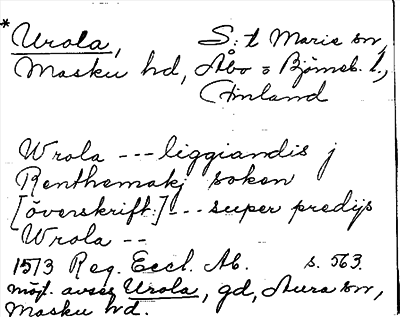 * Urola, S:t Marie sn,
Masku hd, Åbo o Björneb. l.,
Finland
Wrola --- liggiandis j
Renthemakj soken
[överskrift:] --- super predijs
Wrola --
1513 Reg. Eccl. Ab. s. 563.
möjl. avses Urola, gd, Aura sn,
Masku hd.